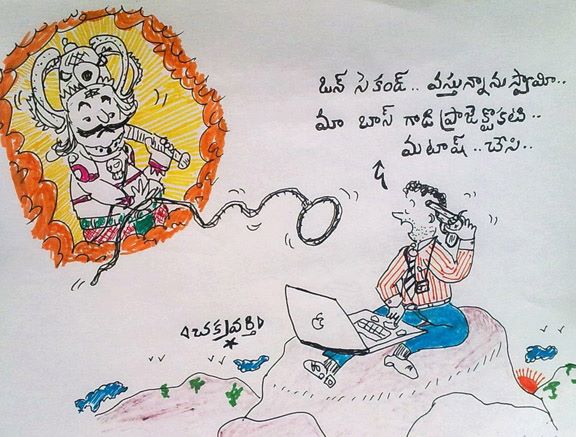 ఒన్ సెకండ్.. వస్తున్నాను స్వామీ..
మా బాస్ గాడి ప్రాజెక్టొకటి..
మటాష్.. చేసి..
చక్రవర్తి